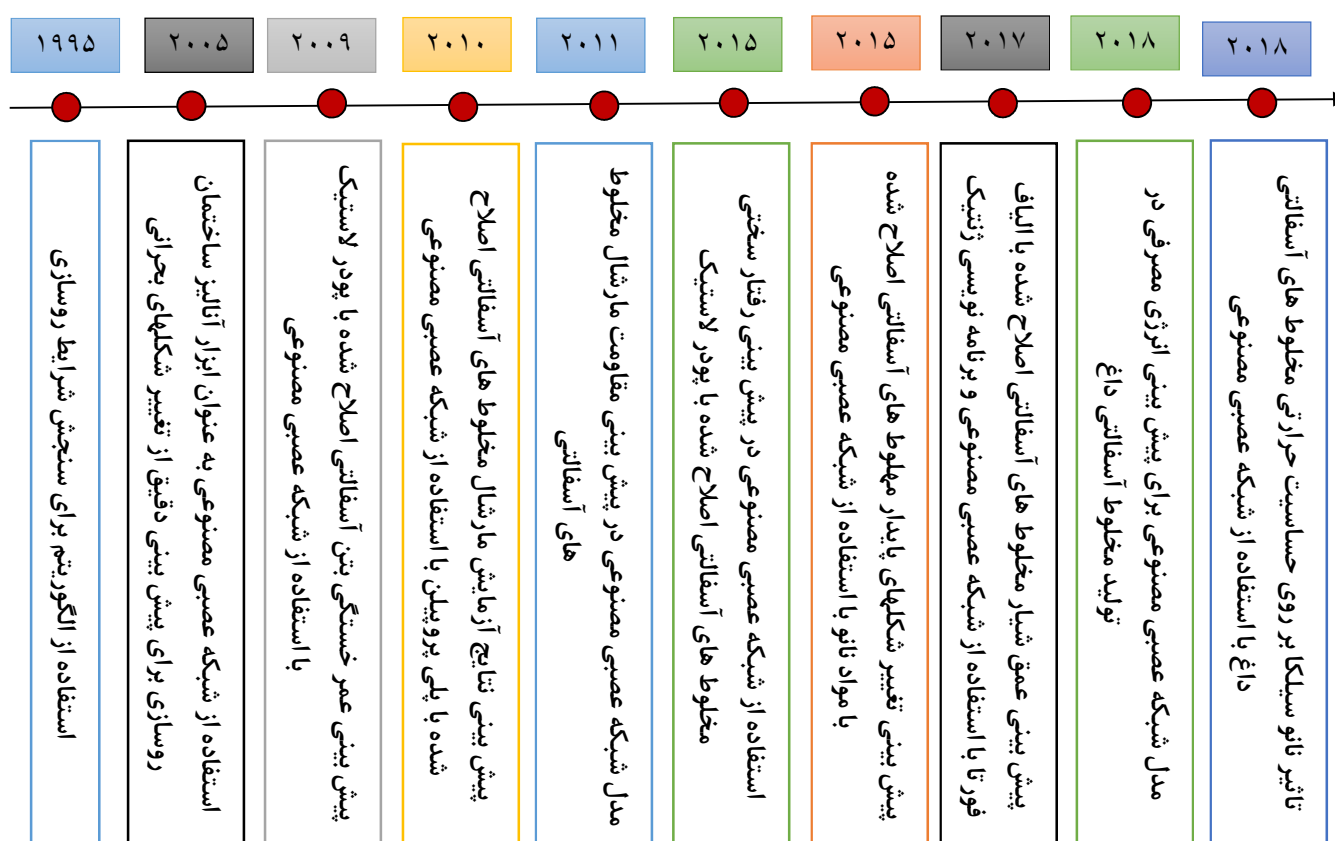 ۱۹۹۵
۲۰۰۵
۲۰۰۹
۲۰۱۰
۲۰۱۱
۲۰۱۵
۲۰۱۵
۲۰۱۷
۲۰۱۸
۲۰۱۸
استفاده از الگوریتم برای سنجش شرایط روسازی
استفاده از شبکه عصبی مصنوعی به عنوان ابزار آنالیز ساختمان
روسازی برای پیش بینی دقیق از تغییر شکلهای بحرانی
پیش بینی عمر خستگی بتن آسفالتی اصلاح شده با پودر لاستیک
با استفاده از شبکه عصبی مصنوعی
پیش بینی نتایج آزمایش مارشال مخلوط های آسفالتی اصلاح
شده با پلی پروپیلن با استفاده از شبکه عصبی مصنوعی
مدل شبکه عصبی مصنوعی در پیش بینی مقاومت مارشال مخلوط
های آسفالتی
استفاده از شبکه عصبی مصنوعی در پیش بینی رفتار سختی
مخلوط های آسفالتی اصلاح شده با پودر لاستیک
پیش بینی تغییر شکلهای پایدار مهلوط های آسفالتی اصلاح شده
با مواد نانو با استفاده از شبکه عصبی مصنوعی
پیش بینی عمق شیار مخلوط های آسفالتی اصلاح شده با الیاف
فور تا با استفاده از شبکه عصبی مصنوعی و برنامه نویسی ژنتیک
مدل شبکه عصبی مصنوعی برای پیش بینی انرژی مصرفی در
تولید مخلوط آسفالتی داغ
تاثیر نانو سیلکا بر روی حساسیت حرارتی مخلوط های آسفالتی
داغ با استفاده از شبکه عصبی مصنوعی